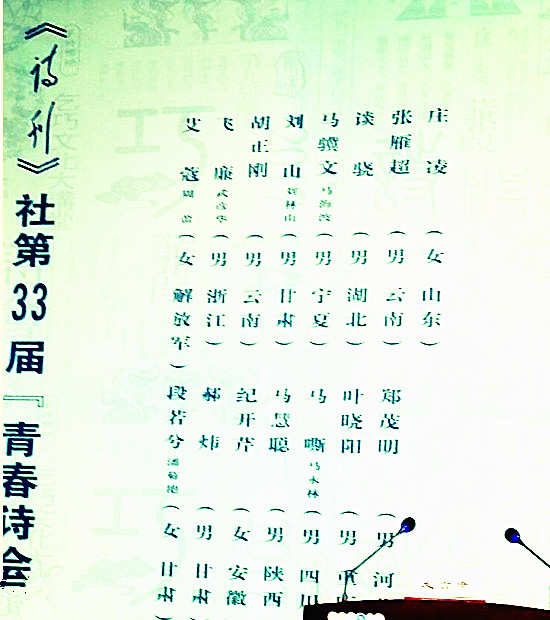 《诗刊》社第33届『青春诗会
艾 蔻 周蕾 (女 解放军)
段若兮 潘菊艳 (女 甘肃)
飞 廉 武彦华 (男 浙江)
郝 炜 (男 甘肃
胡正刚 (男 云南)
纪开芹 (女 安徽
刘 山 刘林山 (男 甘肃)
马慧聪 (男 陕西
马骥文 马海波 (男 宁夏)
马 嘶 马永林 (男 四川
谈 骁 (男 湖北)
叶晓阳 (男 重
张雁超 (男 云南)
郑茂明 (男 河
庄 凌 (女 山东)